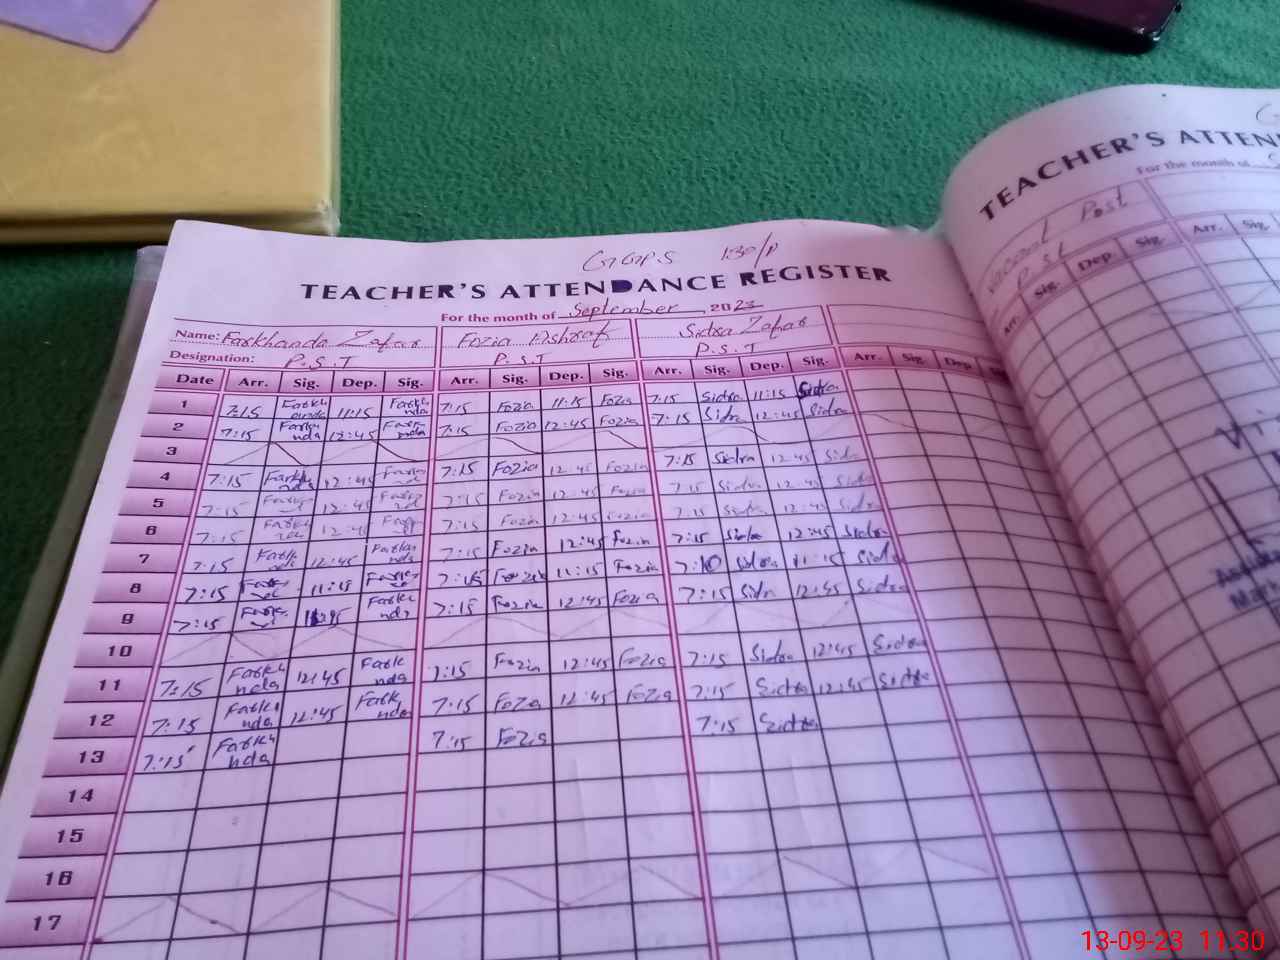 G.G.P.S 130/P
TEACHER'S ATTENDANCE REGISTER
For the month of September, 2023
Name: Farkhanda Zafar Fozia Ashraf Sidra Zafar
Designation: P.S.T P.S.T P.S.T
Date Arr. Sig. Dep. Sig. Arr. Sig. Dep. Sig. Arr. Sig. Dep. Sig. Arr. Sig. Dep
1 7:15 Farkhanda 11:15 Farkhnda 7:15 Fozia 11:15 Fozia 7:15 Sidra 11:15 Sidra
2 7:15 Farkhnda 12:45 Farkhnda 7:15 Fozia 12:45 Fozia 7:15 Sidra 12:45 Sidra
3
4 7:15 12:45 7:15 Fozia 12:45 Fozia 7:15 Sidra 12:45 Sidra
5 7:15 12:45 7:15 Fozia 12:45 Fozia 7:15 Sidra 12:45 Sidra
6 7:15 12:45 7:15 Fozia 12:45 Fozia 7:15 Sidra 12:45 Sidra
7 7:15 12:45 Farkhnda 7:15 Fozia 12:45 Fozia 7:15 Sidra 12:45 Sidra
8 7:15 11:15 7:15 Fozia 11:15 Fozia 7:10 Sidra 11:15 Sidra
9 7:15 12:45 Farkhnda 7:15 Fozia 12:45 Fozia 7:15 Sidra 12:45 Sidra
10
11 7:15 Farkhnda 12:45 Farkhnda 7:15 Fozia 12:45 Fozia 7:15 Sidra 12:45 Sidra
12 7:15 Farkhnda 12:45 Farkhnda 7:15 Fozia 12:45 Fozia 7:15 Sidra 12:45 Sidra
13 7:15 Farkhnda 7:15 Fozia 7:15 Sidra
14
15
16
17
TEACHER'S ATTEN
For the month of
Vacant Post
P.S.T
Arr. Sig. Dep. Sig. Arr. Sig.
13-09-23 11.30